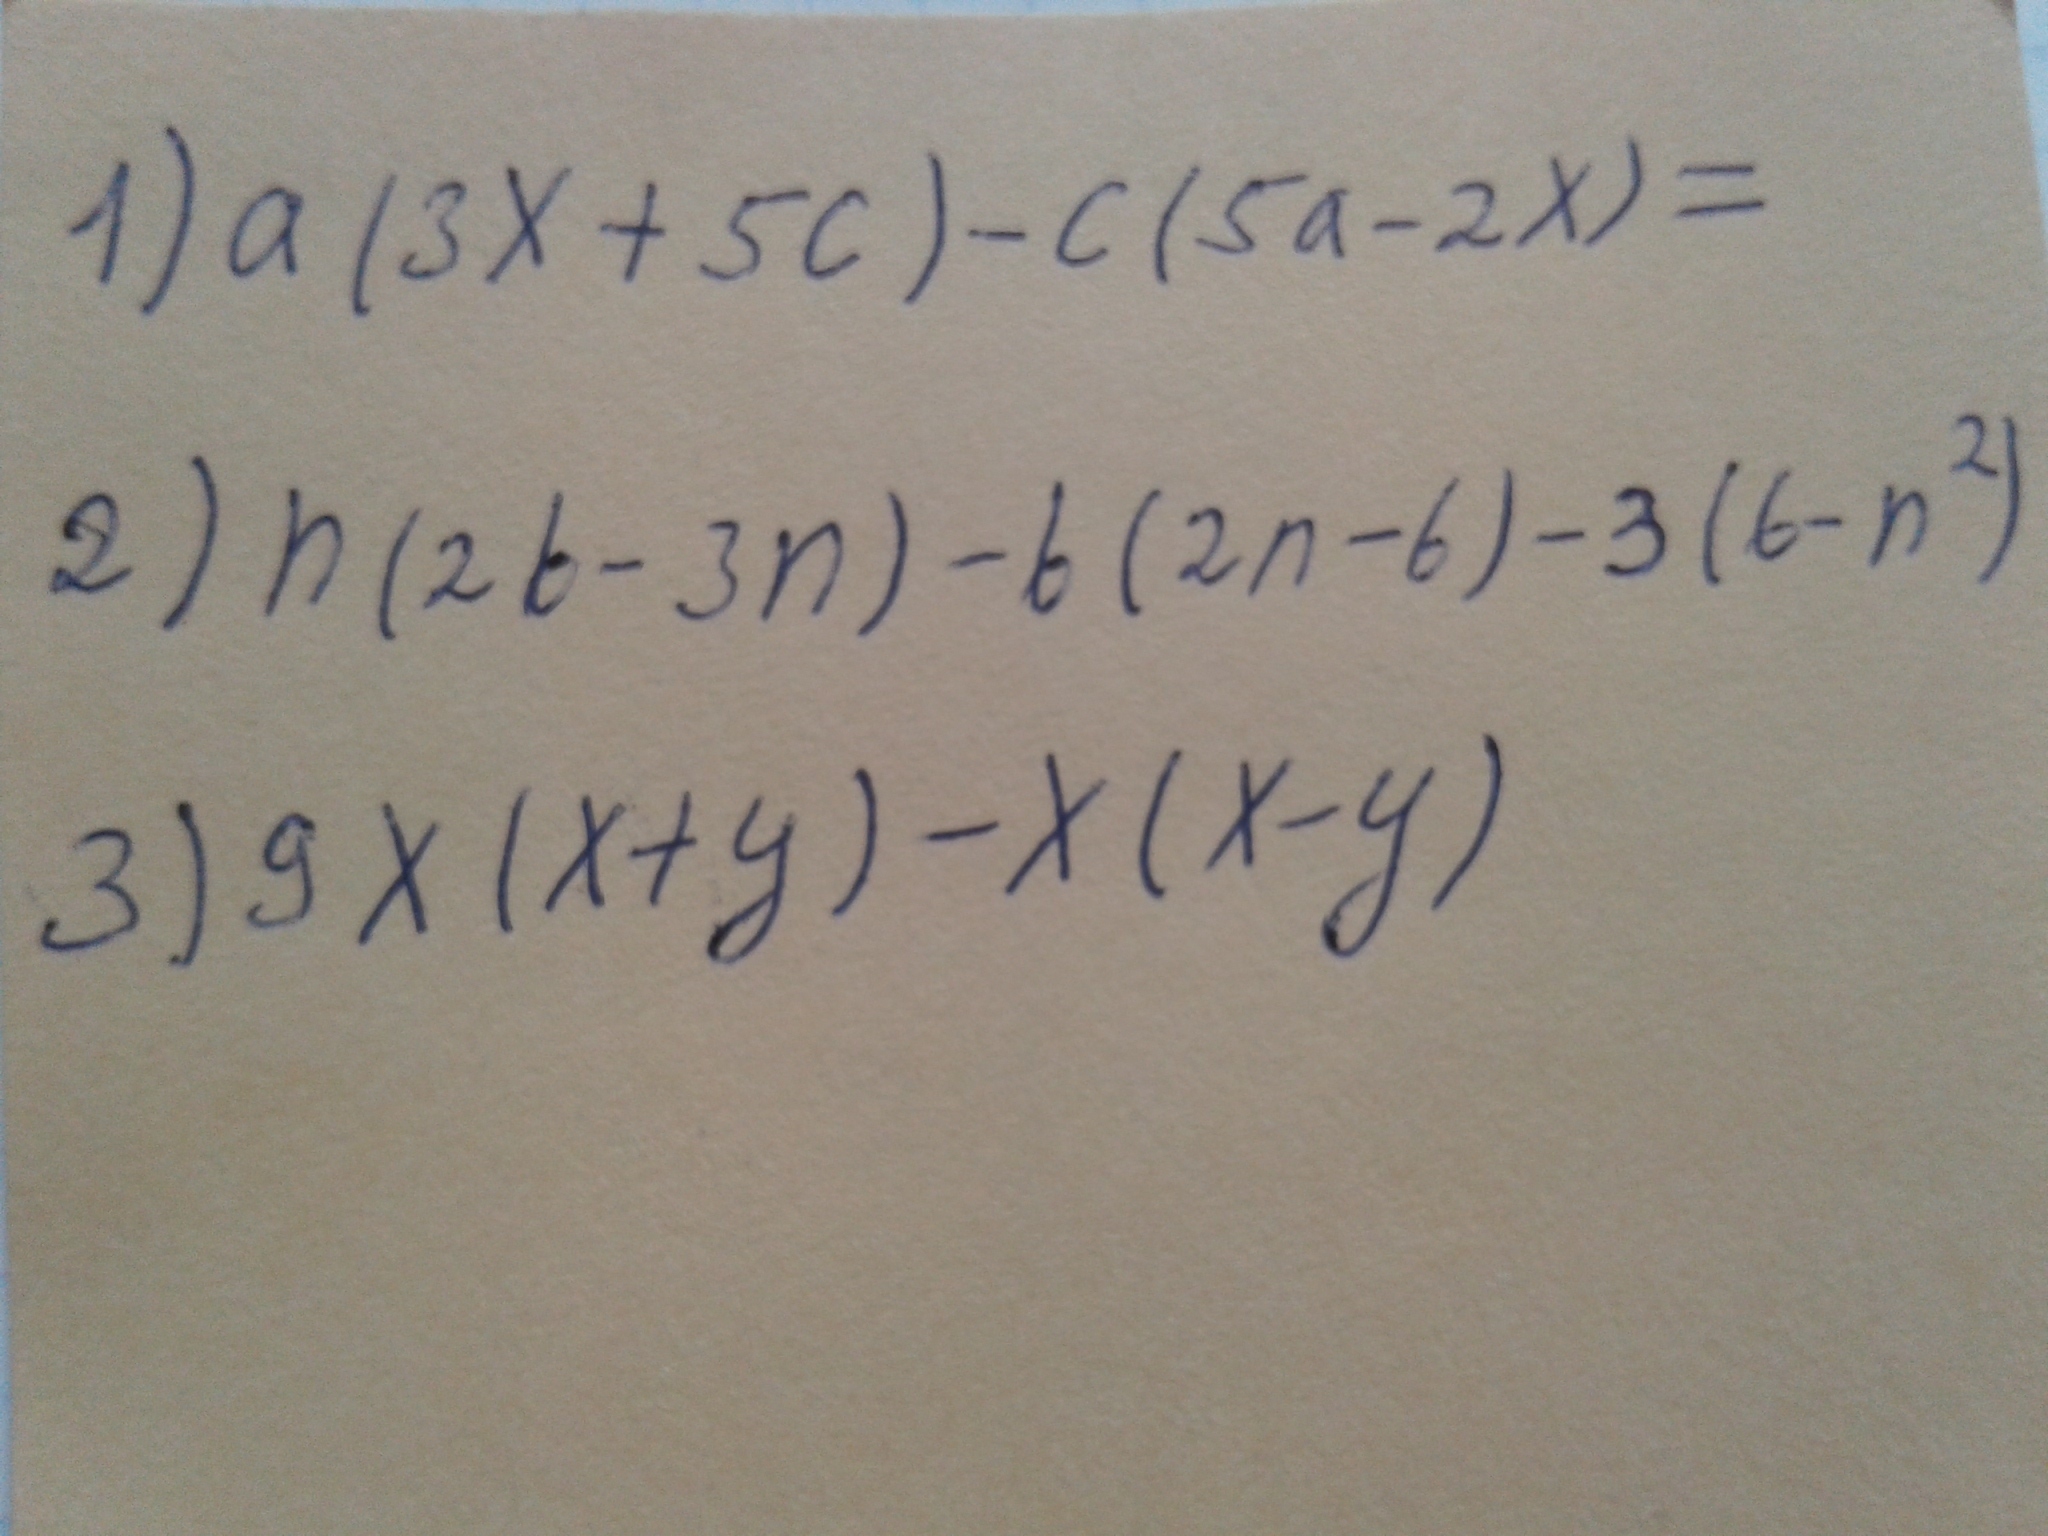 1) a(3x+5c)-c(5a-2x)=
2) n(2b-3n)-b(2n-6)-3(6-n²)
3) 9x(x+y)-x(x-y)